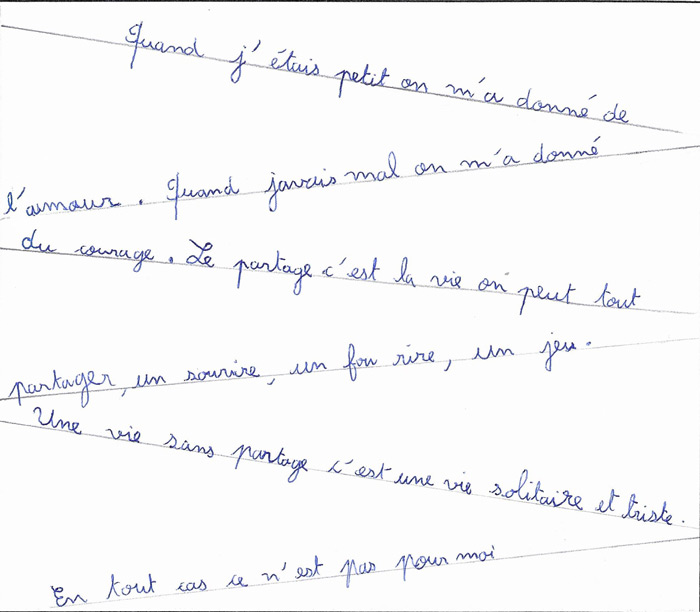 Quand j'étais petit on m'a donné de
l'amour. Quand javais mal on m'a donné
du courage. Le partage c'est la vie on peut tout
partager, un sourire, un fou rire, un jeu.
Une vie sans partage c'est une vie solitaire et triste.
En tout cas ce n'est pas pour moi